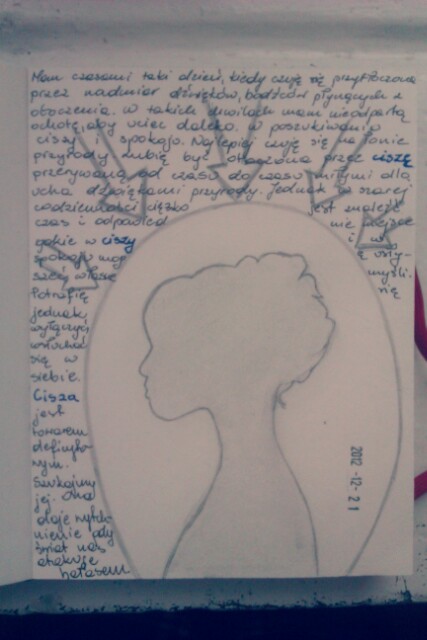 Mam czasami taki dzień, kiedy czuję się przytłoczona
przez nadmiar dźwięków, bodźców płynących z
otoczenia. W takich chwilach mam nieodpartą
ochotę, aby uciec daleko. W poszukiwaniu
ciszy i spokoju. Najlepiej czuję się na łonie
przyrody. Lubię być otoczona przez ciszę
przerywaną od czasu do czasu miłymi dla
ucha dźwiękami przyrody. Jednak w szarej
codzienności ciężko jest znaleźć
czas i odpowied nie miejsce
gdzie w ciszy i w
spokoju mog ę wsły-
szeć własne myśli.
Potrafię się
jednak
wyłączyć
wsłuchać
się w
siebie.
Cisza
jest
towarem
deficyto-
wym.
Szukajmy
jej. Ona
daje wytch-
nienie gdy
świat nas
atakuje
hałasem
2012 -12- 21